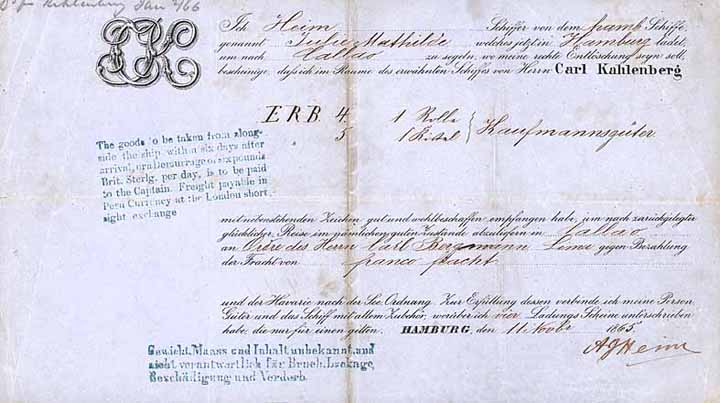 Kahlenberg Jan 2/66
CK
Ich Heim Schiffer von dem hamb Schiffe,
genannt Julie Mathilde welches jetzt in Hamburg ladet,
um nach Callao zu segeln, wo meine rechte Entlöschung seyn soll,
bescheinige, dass ich im Raume des erwähnten Schiffes von Herrn Carl Kahlenberg
ERB 4 1 Rolle
5 1 Kistel } Kaufmannsgüter
The goods to be taken from along-
side the ship with a six days after
arrival, or a Demurrage of six pounds
Brit. Sterlg. per day, is to be paid
to the Captain. Freight payable in
Peru Currency at the London short
sight exchange
mit nebenstehenden Zeichen gut und wohlbeschaffen empfangen habe, um nach zurückgelegter
glücklicher Reise im nämlichen guten Zustande abzuliefern in Callao
an Ordre des Herrn Carl Bergmann Lima gegen Bezahlung
der Fracht von franco fracht
und der Havarie nach der See-Ordnung. Zur Erfüllung dessen verbinde ich meine Person,
Güter und das Schiff mit allem Zubehör, worüber ich vier Ladungs-Scheine unterschrieben
habe, die nur für einen gelten. HAMBURG, den 11 Novbr 1865.
AJHeim
Gewicht, Maass und Inhalt unbekannt, und
nicht verantwortlich für Bruch, Leckage,
Beschädigung und Verderb.